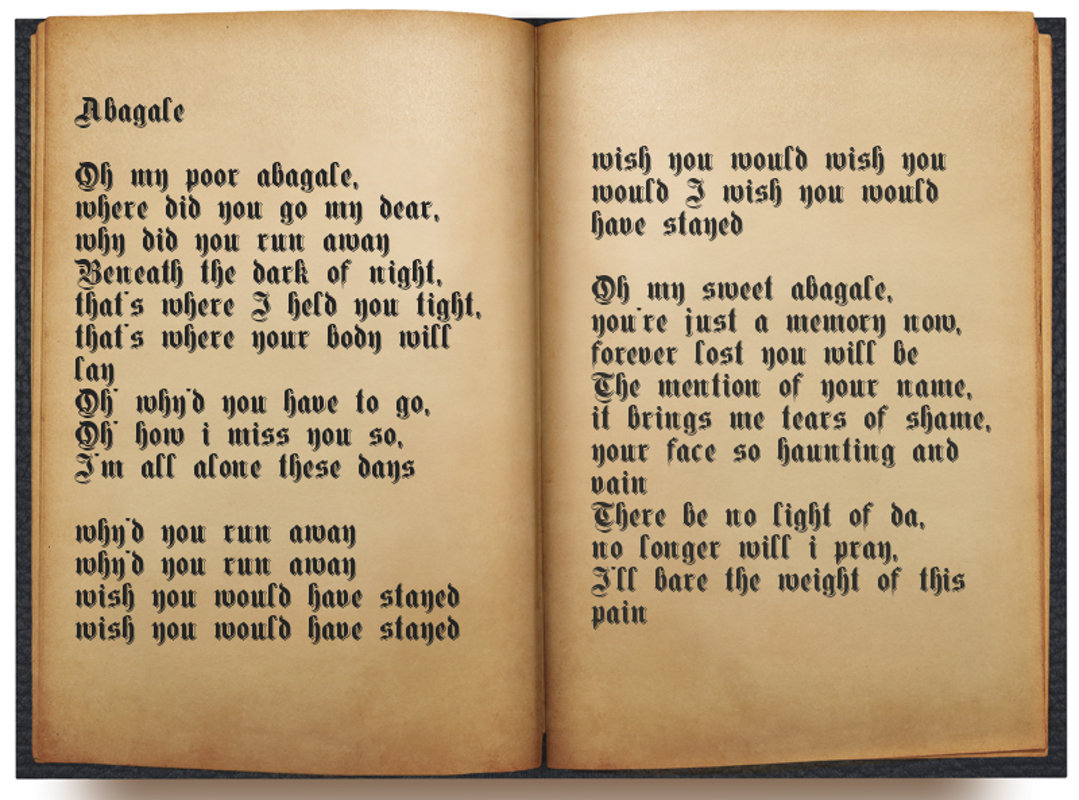 Abagale
Oh my poor abagale,
where did you go my dear,
why did you run away
Beneath the dark of night,
that's where I held you tight,
that's where your body will
lay
Oh' why'd you have to go,
Oh' how i miss you so,
I'm all alone these days
why'd you run away
why'd you run away
wish you would have stayed
wish you would have stayed
wish you would wish you
would I wish you would
have stayed
Oh my sweet abagale,
you're just a memory now,
forever lost you will be
The mention of your name,
it brings me tears of shame,
your face so haunting and
vain
There be no light of da,
no longer will i pray,
I'll bare the weight of this
pain